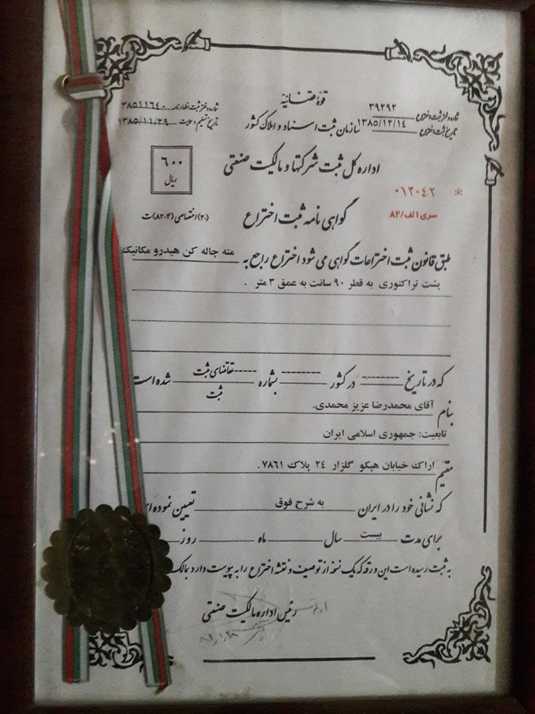 قوهٔ قضائیه
سازمان ثبت اسناد و املاک کشور
شماره دفتر ثبت اختراع ۳۹۲۹۲
تاریخ ثبت اختراع ۱۳۸۵/۱۲/۱۴
شماره دفتر ثبت اظهارنامه ۳۸۵۱۱۶۴۰
تاریخ تسلیم ۱۳۸۵/۱۱/۲۹
اداره کل ثبت شرکتها و مالکیت صنعتی
۶۰۰
ریال
۰۱۲۰۴۲
سری الف/۸۲
گواهی نامه ثبت اختراع
(۲۰) اختصاصی (۲-۸۲) ث
طبق قانون ثبت اختراعات گواهی می شود اختراع راجع به مته چاله کن هیدرو مکانیک
پشت تراکتوری به قطر ۹۰ سانت به عمق ۳ متر .
که در تاریخ -------- در کشور -------- بشماره ----- تقاضای ثبت شده است
ثبت
بنام آقای محمدرضا عزیز محمدی.
تابعیت: جمهوری اسلامی ایران
مقیم اراک خیابان هپکو گلزار ۲۴ پلاک ۷۸۶۱.
که نشانی خود را در ایران به شرح فوق تعیین نموده
برای مدت بیست سال ماه روز
به ثبت رسیده است این ورقه که یک نسخه از توصیف و نقشه اختراع را به پیوست دارد
رئیس اداره مالکیت صنعتی